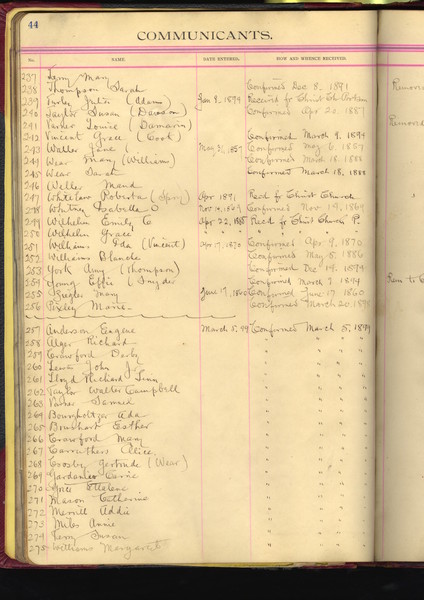 44
COMMUNICANTS.
No. NAME. DATE ENTERED. HOW AND WHENCE RECEIVED.
237 Terry Mary
238 Thompson Sarah Confirmed Dec 8. 1891 Remov
239 Julia (Adams) Jan 8, 1894 Received fr Christ Ch
240 Taylor Susan (Dawson) Confirmed Apr 20. 1887
241 Parker Louise (Damarin) Remov
242 Vincent Grace (Cook) Confirmed March 9. 1894
243 Waller Jane ( May Confirmed May 6. 1889
244 Wear Mary (Williams) Confirmed March 18. 1888
245 Wear Sarah Confirmed March 18. 1888
246 Weller Maud
247 Whitelaw Roberta Apr 1891 Recd fr Christ Church
248 Whitney Isabella Nov 19. 1869 Confirmed Nov 19. 1869
249 Wilhelm Emily C Apr 22, Recd fr Christ Church P.
250 Wilhelm Grace " " " "
251 Williams Ida (Vincent) Apr 1870 Confirmed Apr 9. 1870
252 Williams Blanche Confirmed May 8. 1886
253 York Amy (Thompson) Confirmed Dec 19. 1894
254 Young Effie (Snyder Confirmed March 9 1894 Rem to
255 Mary June 17, 1860 Confirmed June 17 1860
256 Pixley Marie Confirmed March 20,
257 Anderson Eugene March 5, 99 Confirmed March 5, 1899
258 Alger Richard " "
259 Crawford Derby " "
260 Lewis John J " "
261 Lloyd Richard " "
262 Taylor Walter Campbell " "
263 Varner Samuel " "
264 Bourgholtzer Ada " "
265 Bourshart Esther " "
266 Crawford Mary " "
267 Carruthers Alice " "
268 Crosby Gertrude (Wear) " "
269 Carrie " "
270 Ettalene " "
271 Mason Catherine " "
272 Merrill Addie " "
273 Miles Annie " "
274 Terry Susan " "
275 Williams Margaret " "